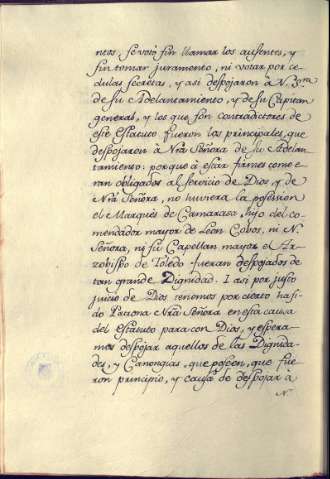 ntes, se votó sin llamar los ausentes, y
sin tomar juramento, ni votar por ce
dulas secretas, y asi despojaron à N. S.ra
de su Adelantamiento, y de su Capitan
general, y los que son contradictores de
ese Estatuto fueron los principales, que
despojaron à Nrã Señora de su Adelan-
tamiento: porque à estar firmes como e
ran obligados al servicio de Dios, y de
Nrã Señora, no tuviera la posesion
el Marques de Camarasa, hijo del co-
mendador mayor de Leon Cobos, ni N.
Señora, ni su Capellan mayor el Ar
zobispo de Toledo fueran despojados de
tan grande Dignidad. I asi por justo
juicio de Dios tenemos por cierto ha si-
do Patrona Nrã Señora en esta causa
del Estatuto para con Dios, y espera
mos despojar aquellos de las Dignida
des, y Canongias, que poseen, que fue
ron principio, y causa de despojar à
N.